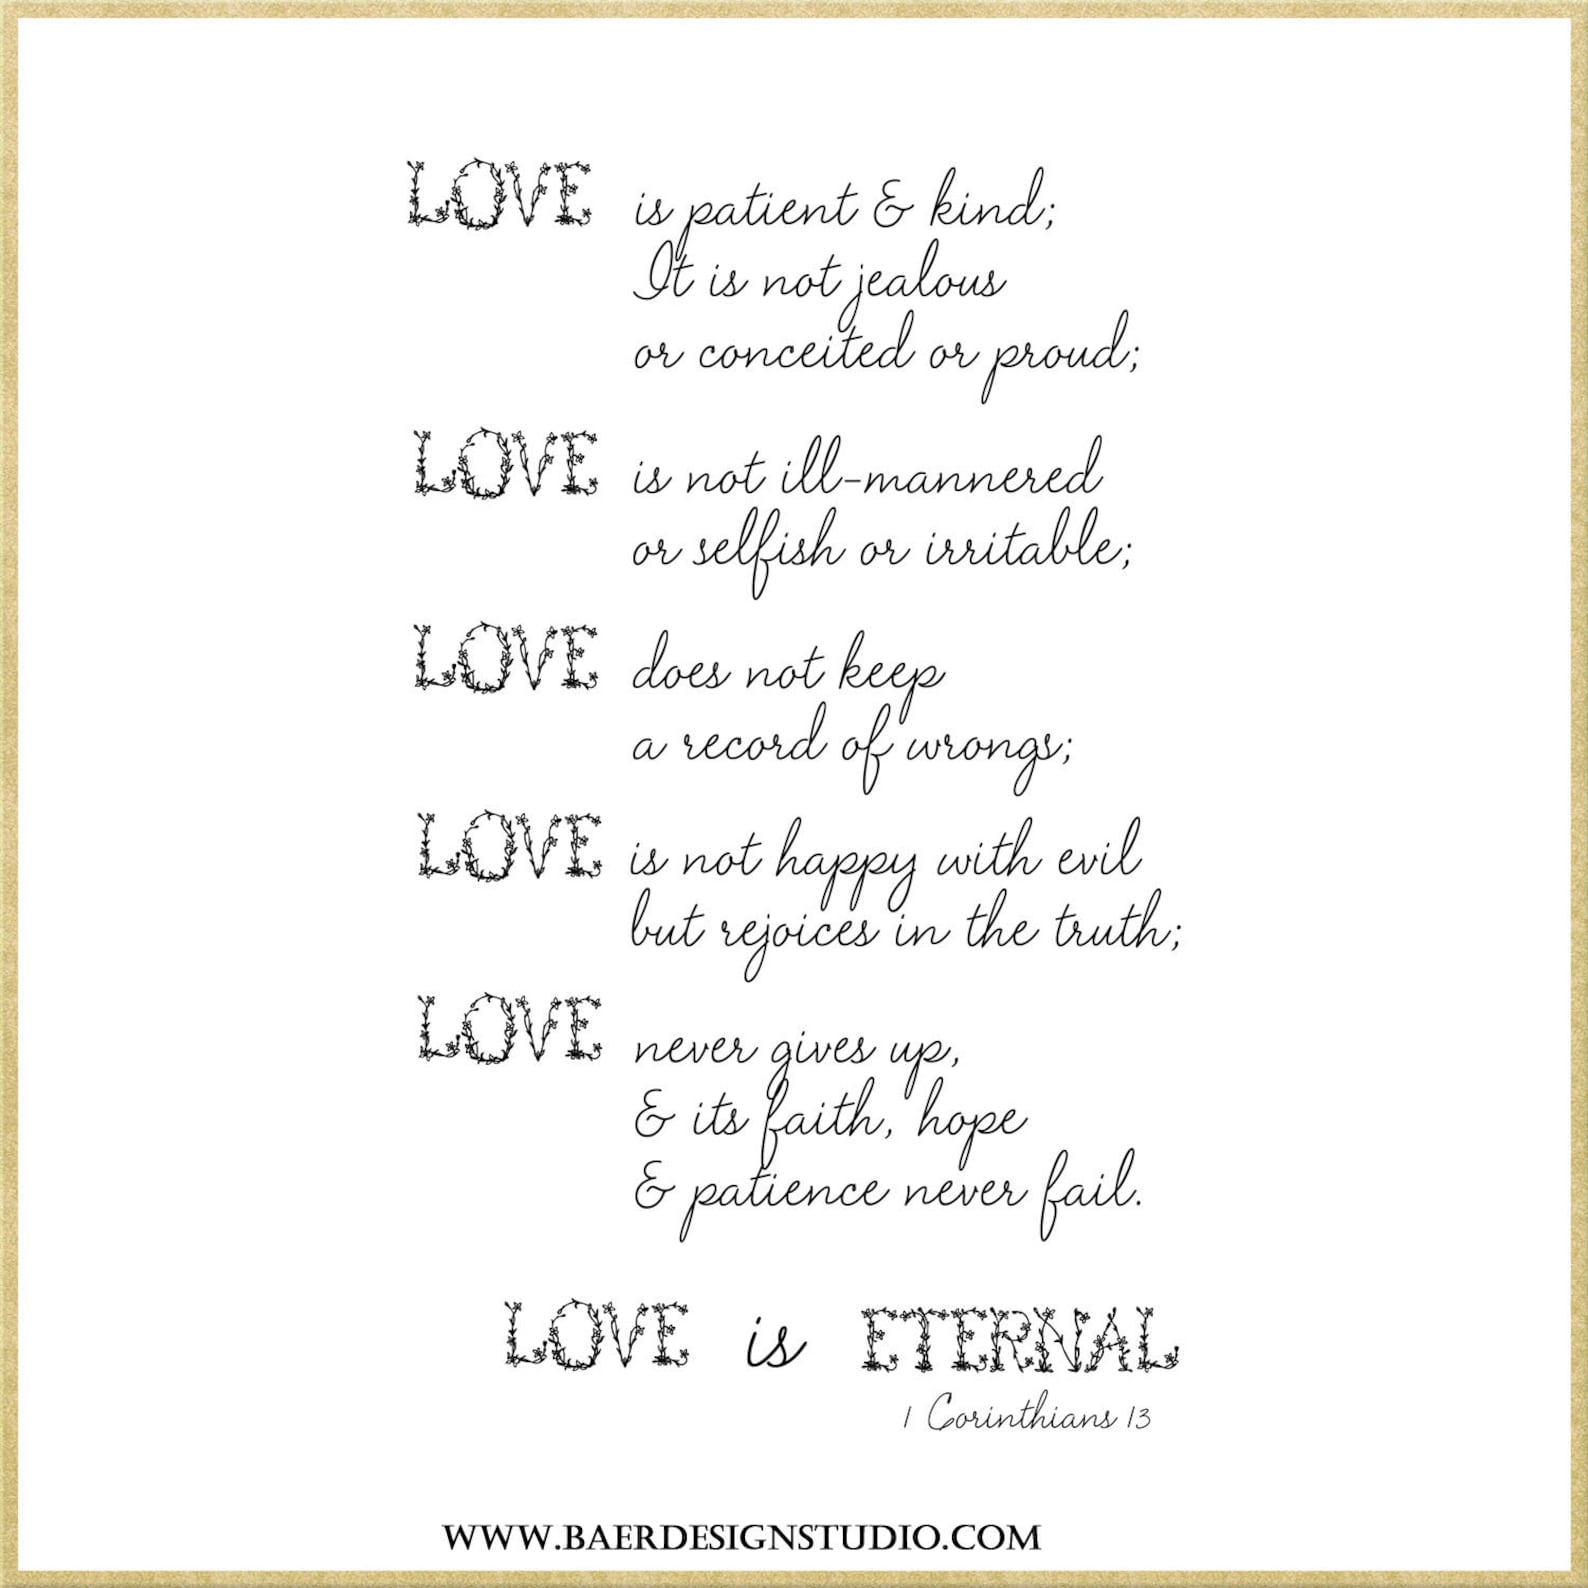 LOVE is patient & kind;
It is not jealous
or conceited or proud;
LOVE is not ill-mannered
or selfish or irritable;
LOVE does not keep
a record of wrongs;
LOVE is not happy with evil
but rejoices in the truth;
LOVE never gives up,
& its faith, hope
& patience never fail.
LOVE is ETERNAL
1 Corinthians 13
WWW.BAERDESIGNSTUDIO.COM